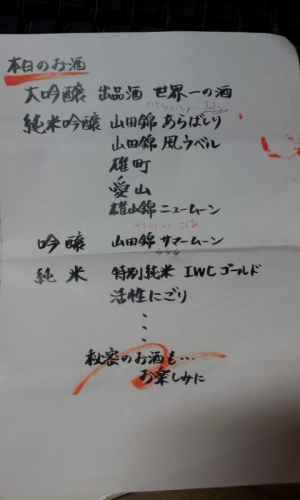 本日のお酒
大吟醸 出品酒 世界一の酒
純米吟醸 山田錦 あらばしり
山田錦 風ラベル
雄町
愛山
雄山錦 ニュームーン
吟醸 山田錦 サマームーン
純米 特別純米 IWCゴールド
活性にごり
・
・
・
秘密のお酒も…
お楽しみに